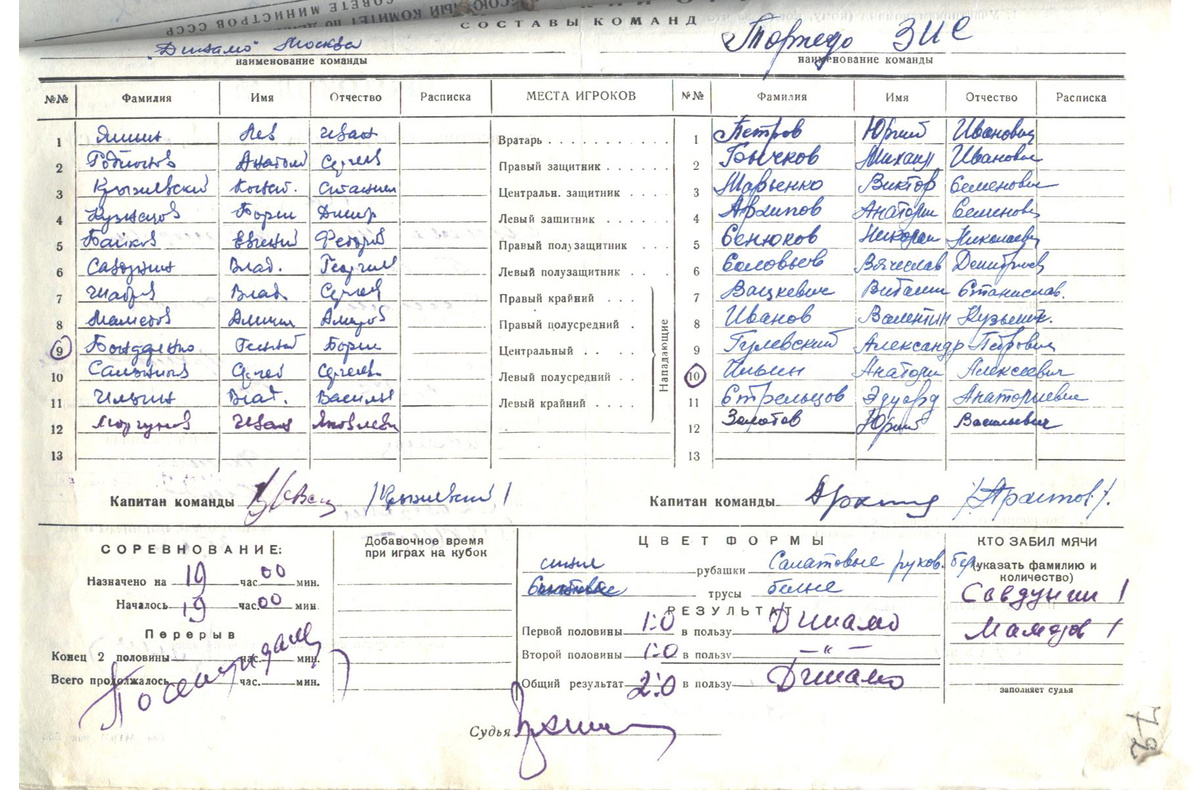 СОВЕТЕ МИНИСТРОВ СССР
СОСТАВЫ КОМАНД
"Динамо" Москва Торпедо ЗИС
наименование команды наименование команды
№№ Фамилия Имя Отчество Расписка МЕСТА ИГРОКОВ №№ Фамилия Имя Отчество Расписка
1 Яшин Лев Иван Вратарь 1 Петров Юрий Иванович
2 Родионов Анатол Сергеев Правый защитник 2 Гычков Михаил Иванович
3 Крыжевский Конст. Станисл Центральн. защитник 3 Марьенко Виктор Семенович
4 Кузнецов Борис Дмитр Левый защитник 4 Архипов Анатолий Семенович
5 Байков Евгений Федоров Правый полузащитник 5 Сенюков Николай Николаевич
6 Савдунин Влад. Георгие Левый полузащитник 6 Соловьев Вячеслав Дмитриев
7 Шабров Влад. Сергеев Правый крайний 7 Вацкевич Виталий Станислав.
8 Мамедов Алекпер Амиров Правый полусредний 8 Иванов Валентин Кузьмич.
9 Бондаренко Генний Борис Центральный 9 Гулевский Александр Петрович
10 Сальников Сергей Сергеев Левый полусредний 10 Ильин Анатолий Алексеевич
11 Ильин Влад. Василье Левый крайний 11 Стрельцов Эдуард Анатолиевич
12 Моргунов Иван Яковлеви 12 Золотов Юрий Васильевич
13 13
Нападающие
Капитан команды /Крыжевский/ Капитан команды /Архипов/.
СОРЕВНОВАНИЕ: Добавочное время при играх на кубок ЦВЕТ ФОРМЫ КТО ЗАБИЛ МЯЧИ
Назначено на 19 час. 00 мин. синие рубашки Салатовые руков. бел (указать фамилию и количество)
трусы белые Савдунин 1
Началось 19 час. 00 мин РЕЗУЛЬТАТ
Перерыв Первой половины 1:0 в пользу Динамо Мамедов 1
Конец 2 половины час. мин. Второй половины 1:0 в пользу — " —
Всего продолжалось час. мин. Общий результат 2:0 в пользу Динамо заполняет судья
Судья
79